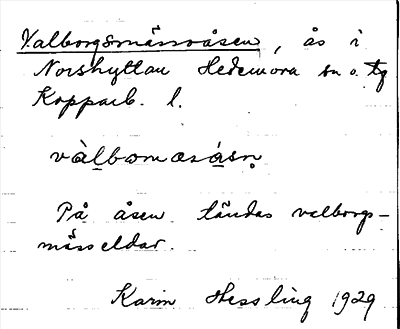 Valborgsmässoåsen, ås i
Norshyttan Hedemora sn o. tg
Kopparb. l.
vàlbomæsásn̥
På åsen tändas valborgs-
mässeldar.
Karin Hessling 1929